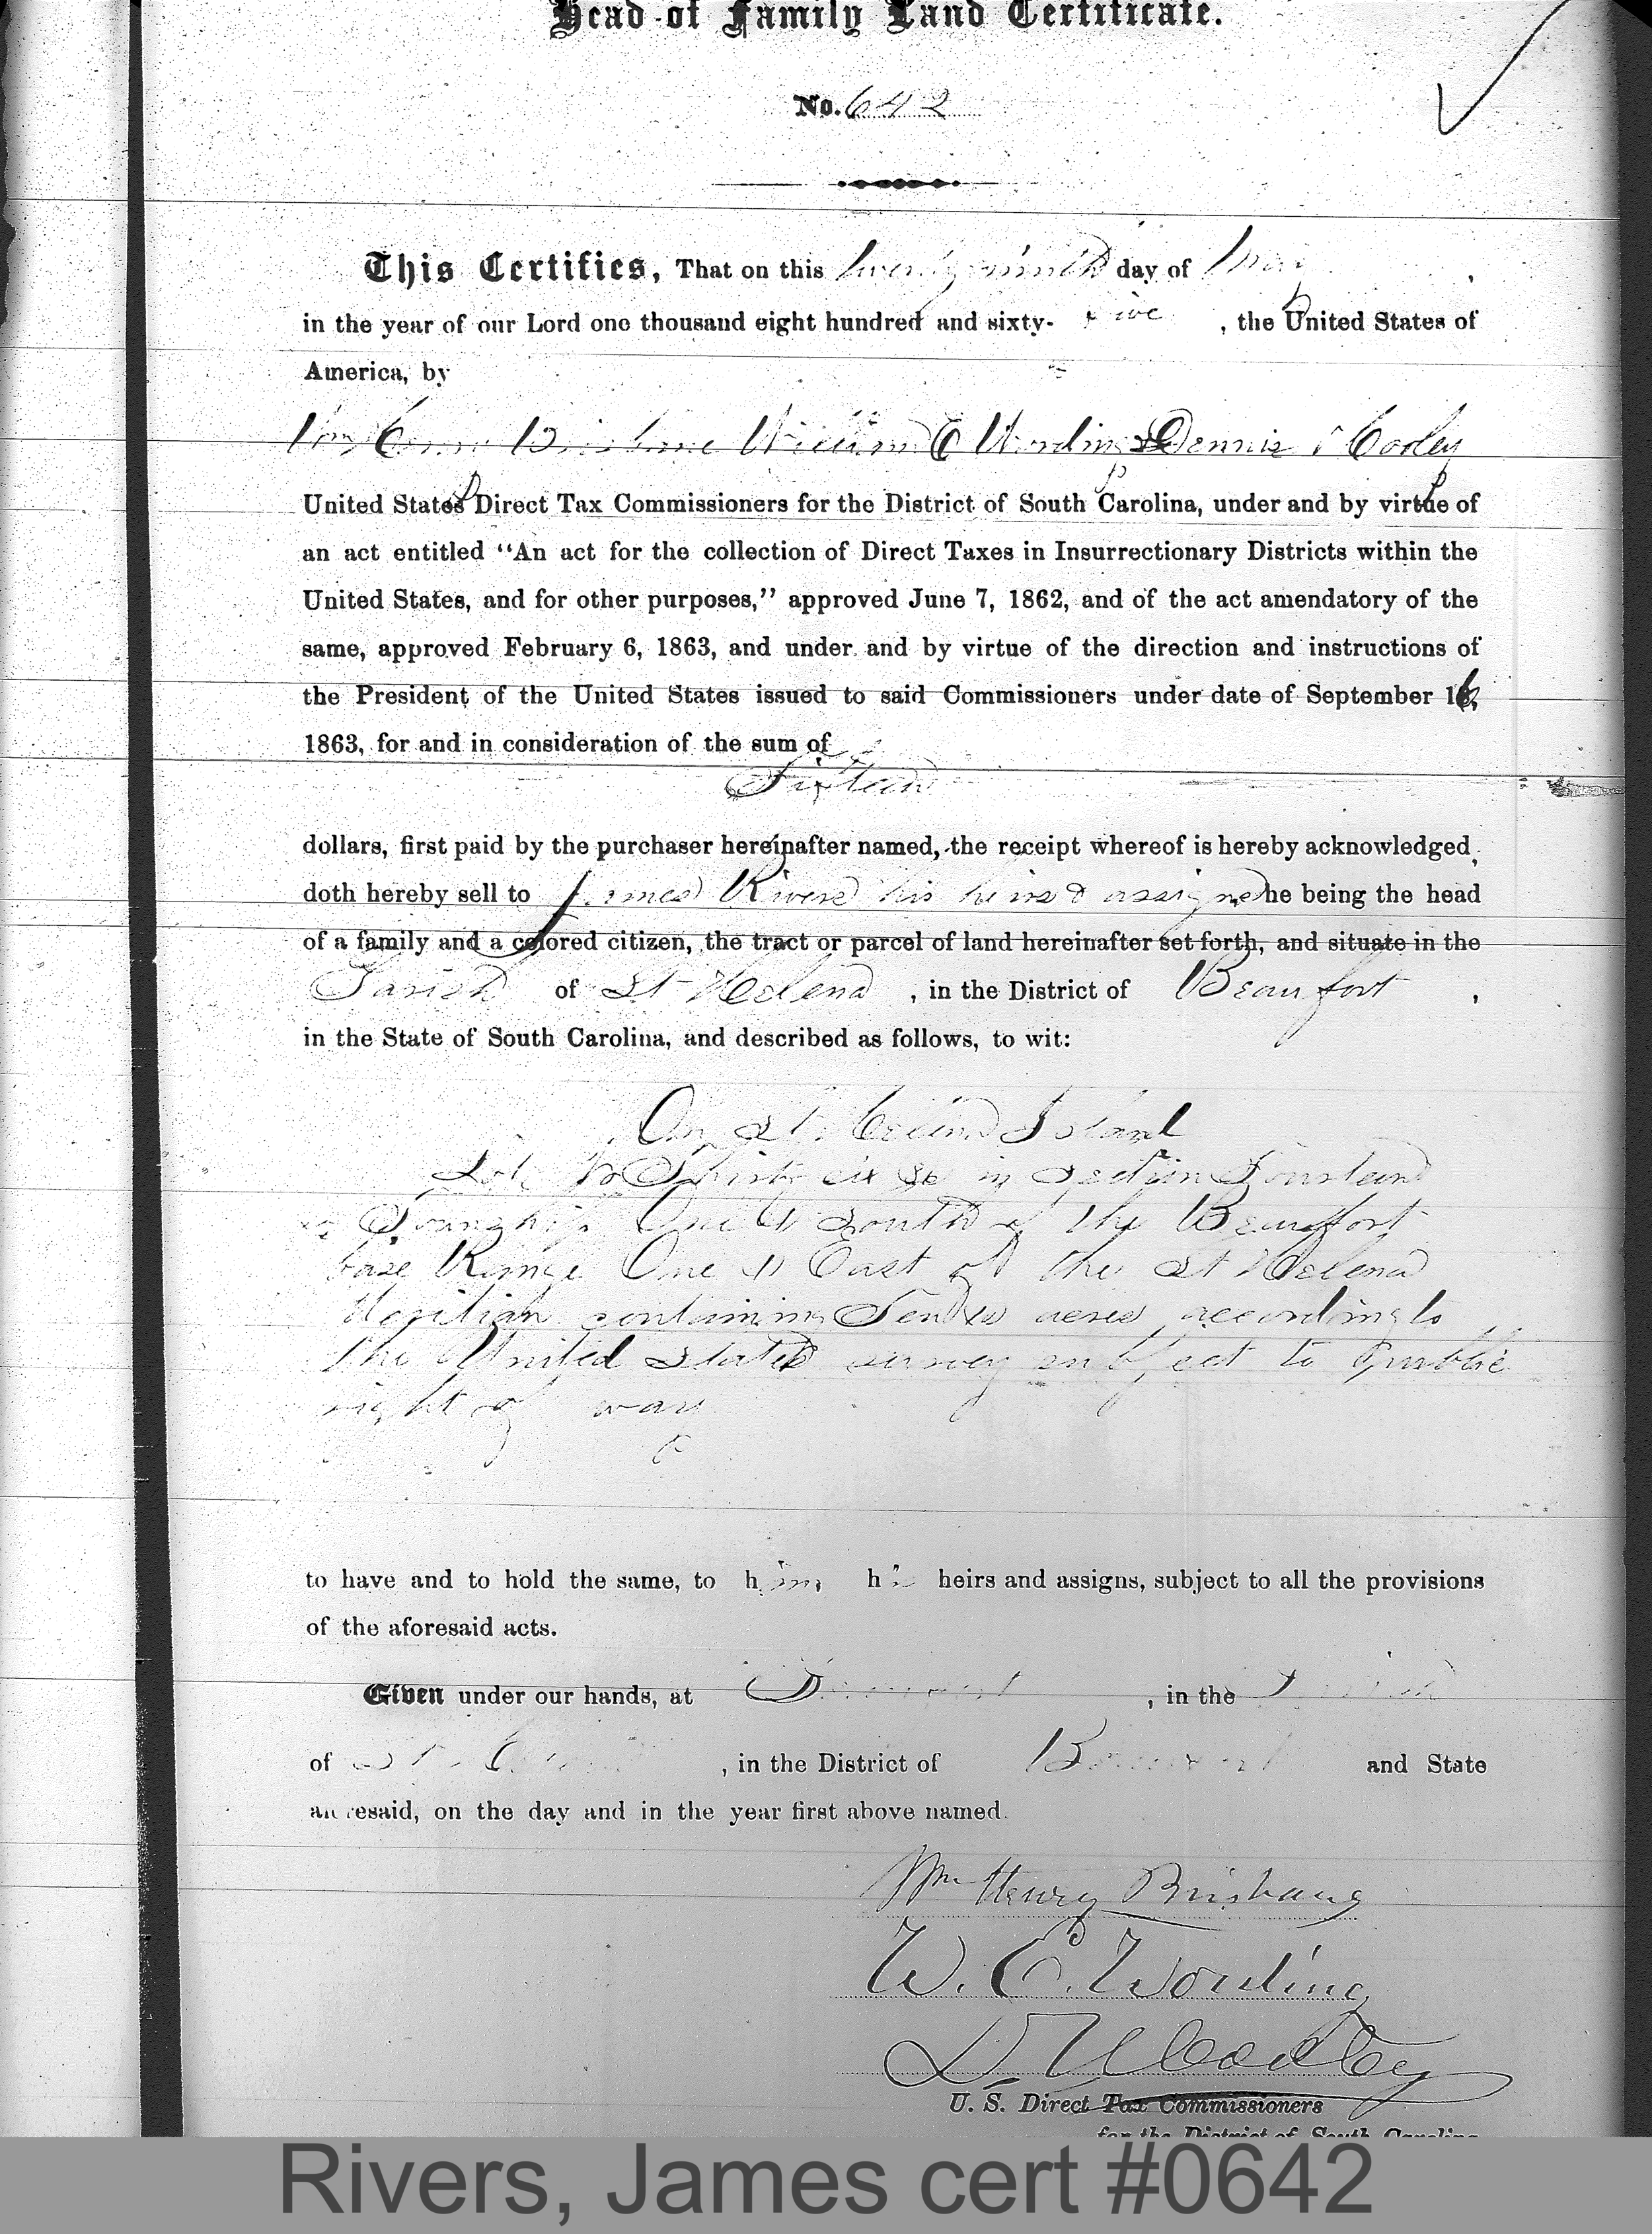 Head of Family Land Certificate.
No. 642
This Certifies, That on this twenty ninth day of May,
in the year of our Lord one thousand eight hundred and sixty-five, the United States of
America, by
Wm Henry Brisbane William E Wording & Dennis N Cooley
United States Direct Tax Commissioners for the District of South Carolina, under and by virtue of
an act entitled "An act for the collection of Direct Taxes in Insurrectionary Districts within the
United States, and for other purposes," approved June 7, 1862, and of the act amendatory of the
same, approved February 6, 1863, and under and by virtue of the direction and instructions of
the President of the United States issued to said Commissioners under date of September 16,
1863, for and in consideration of the sum of
Fifteen
dollars, first paid by the purchaser hereinafter named, the receipt whereof is hereby acknowledged,
doth hereby sell to James Rivers his heirs & assigns he being the head
of a family and a colored citizen, the tract or parcel of land hereinafter set forth, and situate in the
Parish of St Helena, in the District of Beaufort,
in the State of South Carolina, and described as follows, to wit:
On St Helena Island
Lot No Thirty six 36 in Section Fourteen
Township One (1) South of the Beaufort
base Range One (1) East of the St Helena
Meridian containing Ten (10) acres according to
the United States survey subject to public
right of way
to have and to hold the same, to him his heirs and assigns, subject to all the provisions
of the aforesaid acts.
Given under our hands, at Beaufort, in the Parish
of St Helena, in the District of Beaufort and State
aforesaid, on the day and in the year first above named.
Wm Henry Brisbane
W. E. Wording
D. N. Cooley
U. S. Direct Tax Commissioners
for the District of South Carolina
Rivers, James cert #0642